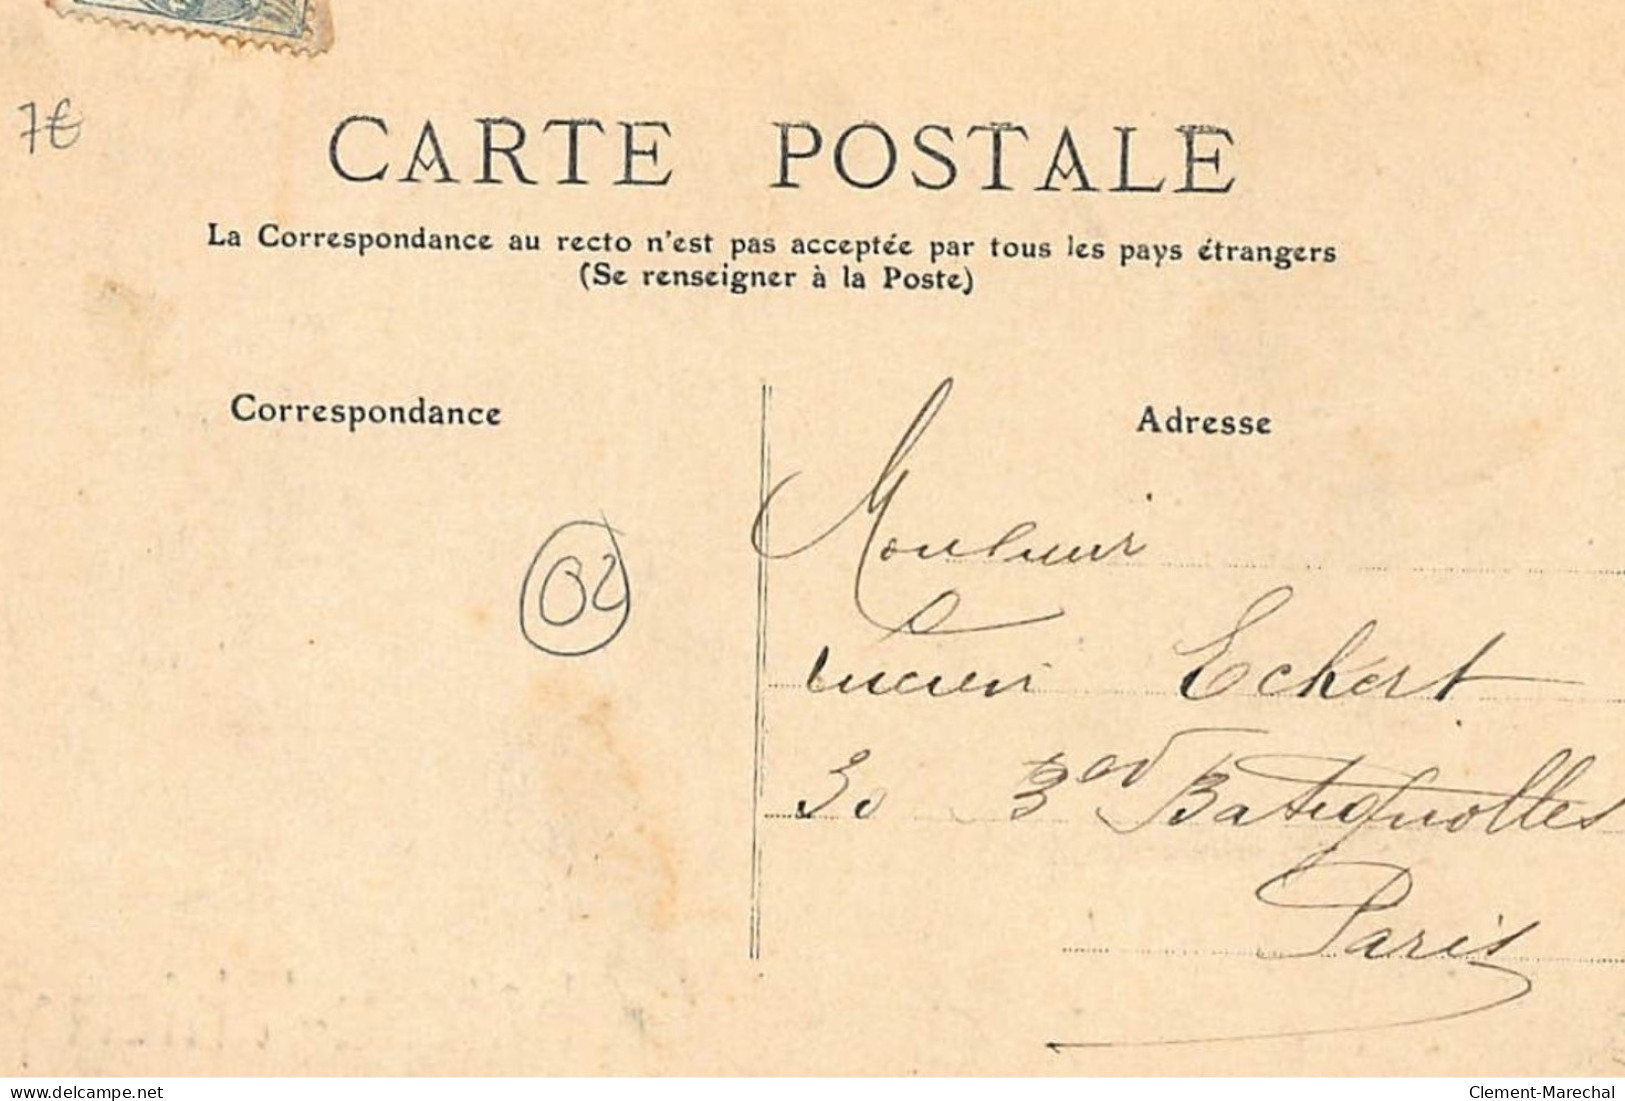 7€
CARTE POSTALE
La Correspondance au recto n'est pas acceptée par tous les pays étrangers
(Se renseigner à la Poste)
Correspondance
Adresse
02
Monsieur
Lucien Eckert
30 Bd Batignolles
Paris
www.delcampe.net
Clement-Marechal